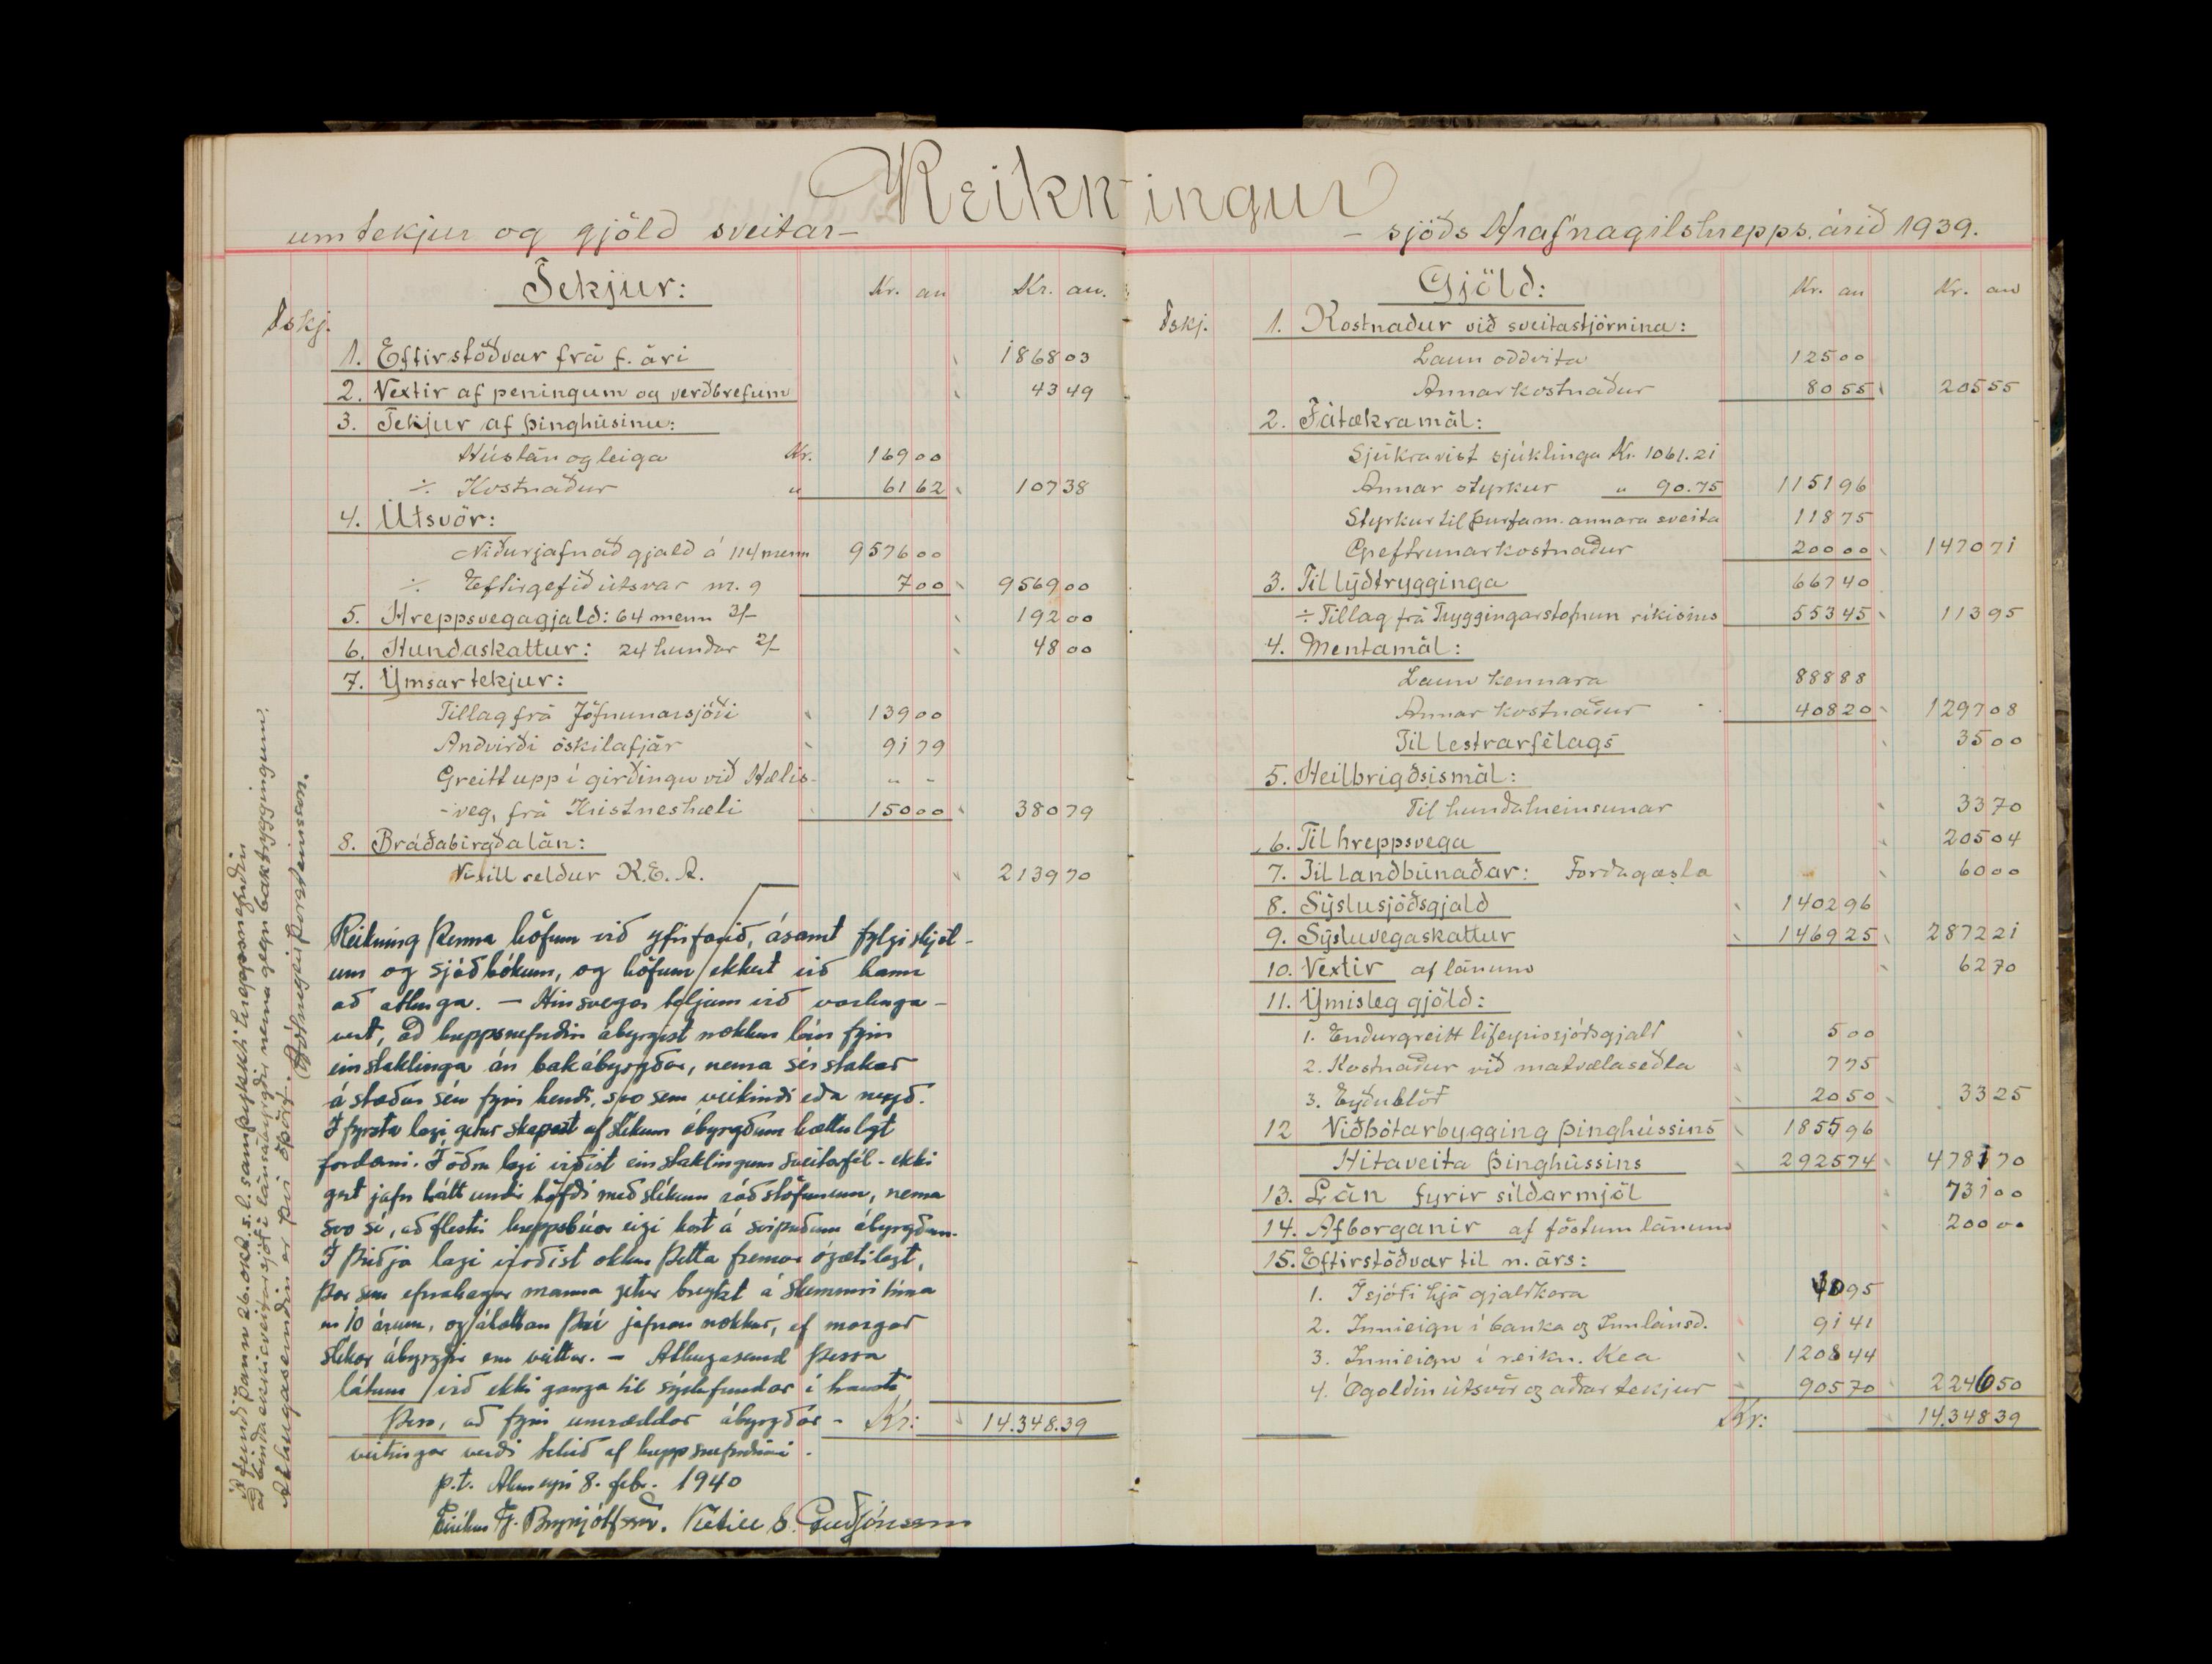 Reikningur
um tekjur og gjöld sveitar- - sjóðs Hrafnagilshrepps, árið 1939.
Tekjur:
Kr. au Kr. au.
Fskj.
1. Eftirstöðvar frá f. ári 1868 03
2. Vextir af peningum og verðbrefum 43 49
3. Tekjur af þinghúsinu:
Húslán og leiga Kr. 169 00
÷ Kostnaður " 61 62 107 38
4. Útsvör:
Niðurjafnað gjald á 114 menn 9576 00
÷ Eftirgefið útsvar nr. 9 7 00 9569 00
5. Hreppsvegagjald: 64 menn 3/- 192 00
6. Hundaskattur: 24 hundar 2/- 48 00
7. Ýmsar tekjur:
Tillag frá Jöfnunarsjóði 139 00
Andvirði óskilafjár 91 79
Greitt upp í girðingu við Hælis- " -
-veg, frá Kristneshæli 150 00 380 79
8. Bráðabirgðalán:
Víxill seldur K.E.A. 2139 70
Reikning þenna höfum við yfirfarið, ásamt fylgiskjöl-
um og sjóðbókum, og höfum ekkert við hann
að athuga. - Hinsvegar teljum við varhuga-
vert, að hreppsnefndin ábyrgist nokkur lán fyrir
einstaklinga án bakábyrgðar, nema sérstakar
ástæður séu fyrir hendi, svo sem veikindi eða neyð.
Í fyrsta lagi getur skapast af slíkum ábyrgðum hættulegt
fordæmi. Í öðru lagi virðist einstaklingum sveitarfél. ekki
gert jafn hátt undir höfði með slíkum ráðstöfunum, nema
svo sé, að flestir hreppsbúar eigi kost á svipuðum ábyrgðum.
Í þriðja lagi virðist okkur þetta fremur ógætilegt,
þar sem efnahagur manna getur breytst á skemmri tíma
en 10 árum, og áhættan því jafnan nokkur, ef margar
slíkar ábyrgðir eru veittar. - Athugasemd þessa
látum við ekki ganga til sýslufundar í trausti
þess, að fyrir umræddar ábyrgðar- Kr: 14.348.39
veitingar verði tekið af hreppsnefndinni.
p.t. Akureyri 8. febr. 1940
Eiríkur G. Brynjólfsson. Ketill S. Guðjónsson
Á fundi þann 26. okt. s.l. samþykkti hreppsnefndin
að binda ekki sveitarsjóð í lánsábyrgðir nema gegn baktryggingum.
Athugasemdin er því óþörf. Hólmgeir Þorsteinsson.
Gjöld:
Kr. au Kr. au
Fskj.
1. Kostnaður við sveitastjórnina:
Laun oddvita 125 00
Annar kostnaður 80 55 205 55
2. Fátækramál:
Sjúkravist sjúklinga Kr. 1061.21
Annar styrkur " 90.75 1151 96
Styrkur til þurfam. annara sveita 118 75
Greftrunarkostnaður 200 00 1470 71
3. Til lýðtrygginga 667 40
÷ Tillag frá Tryggingarstofnun ríkisins 553 45 113 95
4. Mentamál:
Laun kennara 888 88
Annar kostnaður 408 20 1297 08
Til lestrarfélags 35 00
5. Heilbrigðismál:
Til hundahreinsunar 33 70
6. Til hreppsvega 205 04
7. Til landbúnaðar: Forðagæsla 60 00
8. Sýslusjóðsgjald 1402 96
9. Sýsluvegaskattur 1469 25 2872 21
10. Vextir af lánum 62 70
11. Ýmisleg gjöld:
1. Endurgreitt lífeyrissjóðsgjald 5 00
2. Kostnaður við matvælaseðla 7 75
3. Eyðublöð 20 50 33 25
12 Viðbótarbygging þinghússins 1855 96
Hitaveita þinghússins 2925 74 4781 70
13. Lán fyrir síldarmjöl 731 00
14. Afborganir af föstum lánum 200 00
15. Eftirstöðvar til n. árs:
1. Í sjóði hjá gjaldkera 95
2. Innieign í banka og Innlánsd. 91 41
3. Innieign í reikn. Kea 1208 44
4. Ógoldin útsvör og aðrar tekjur 905 70 2246 50
Kr: 14.348 39